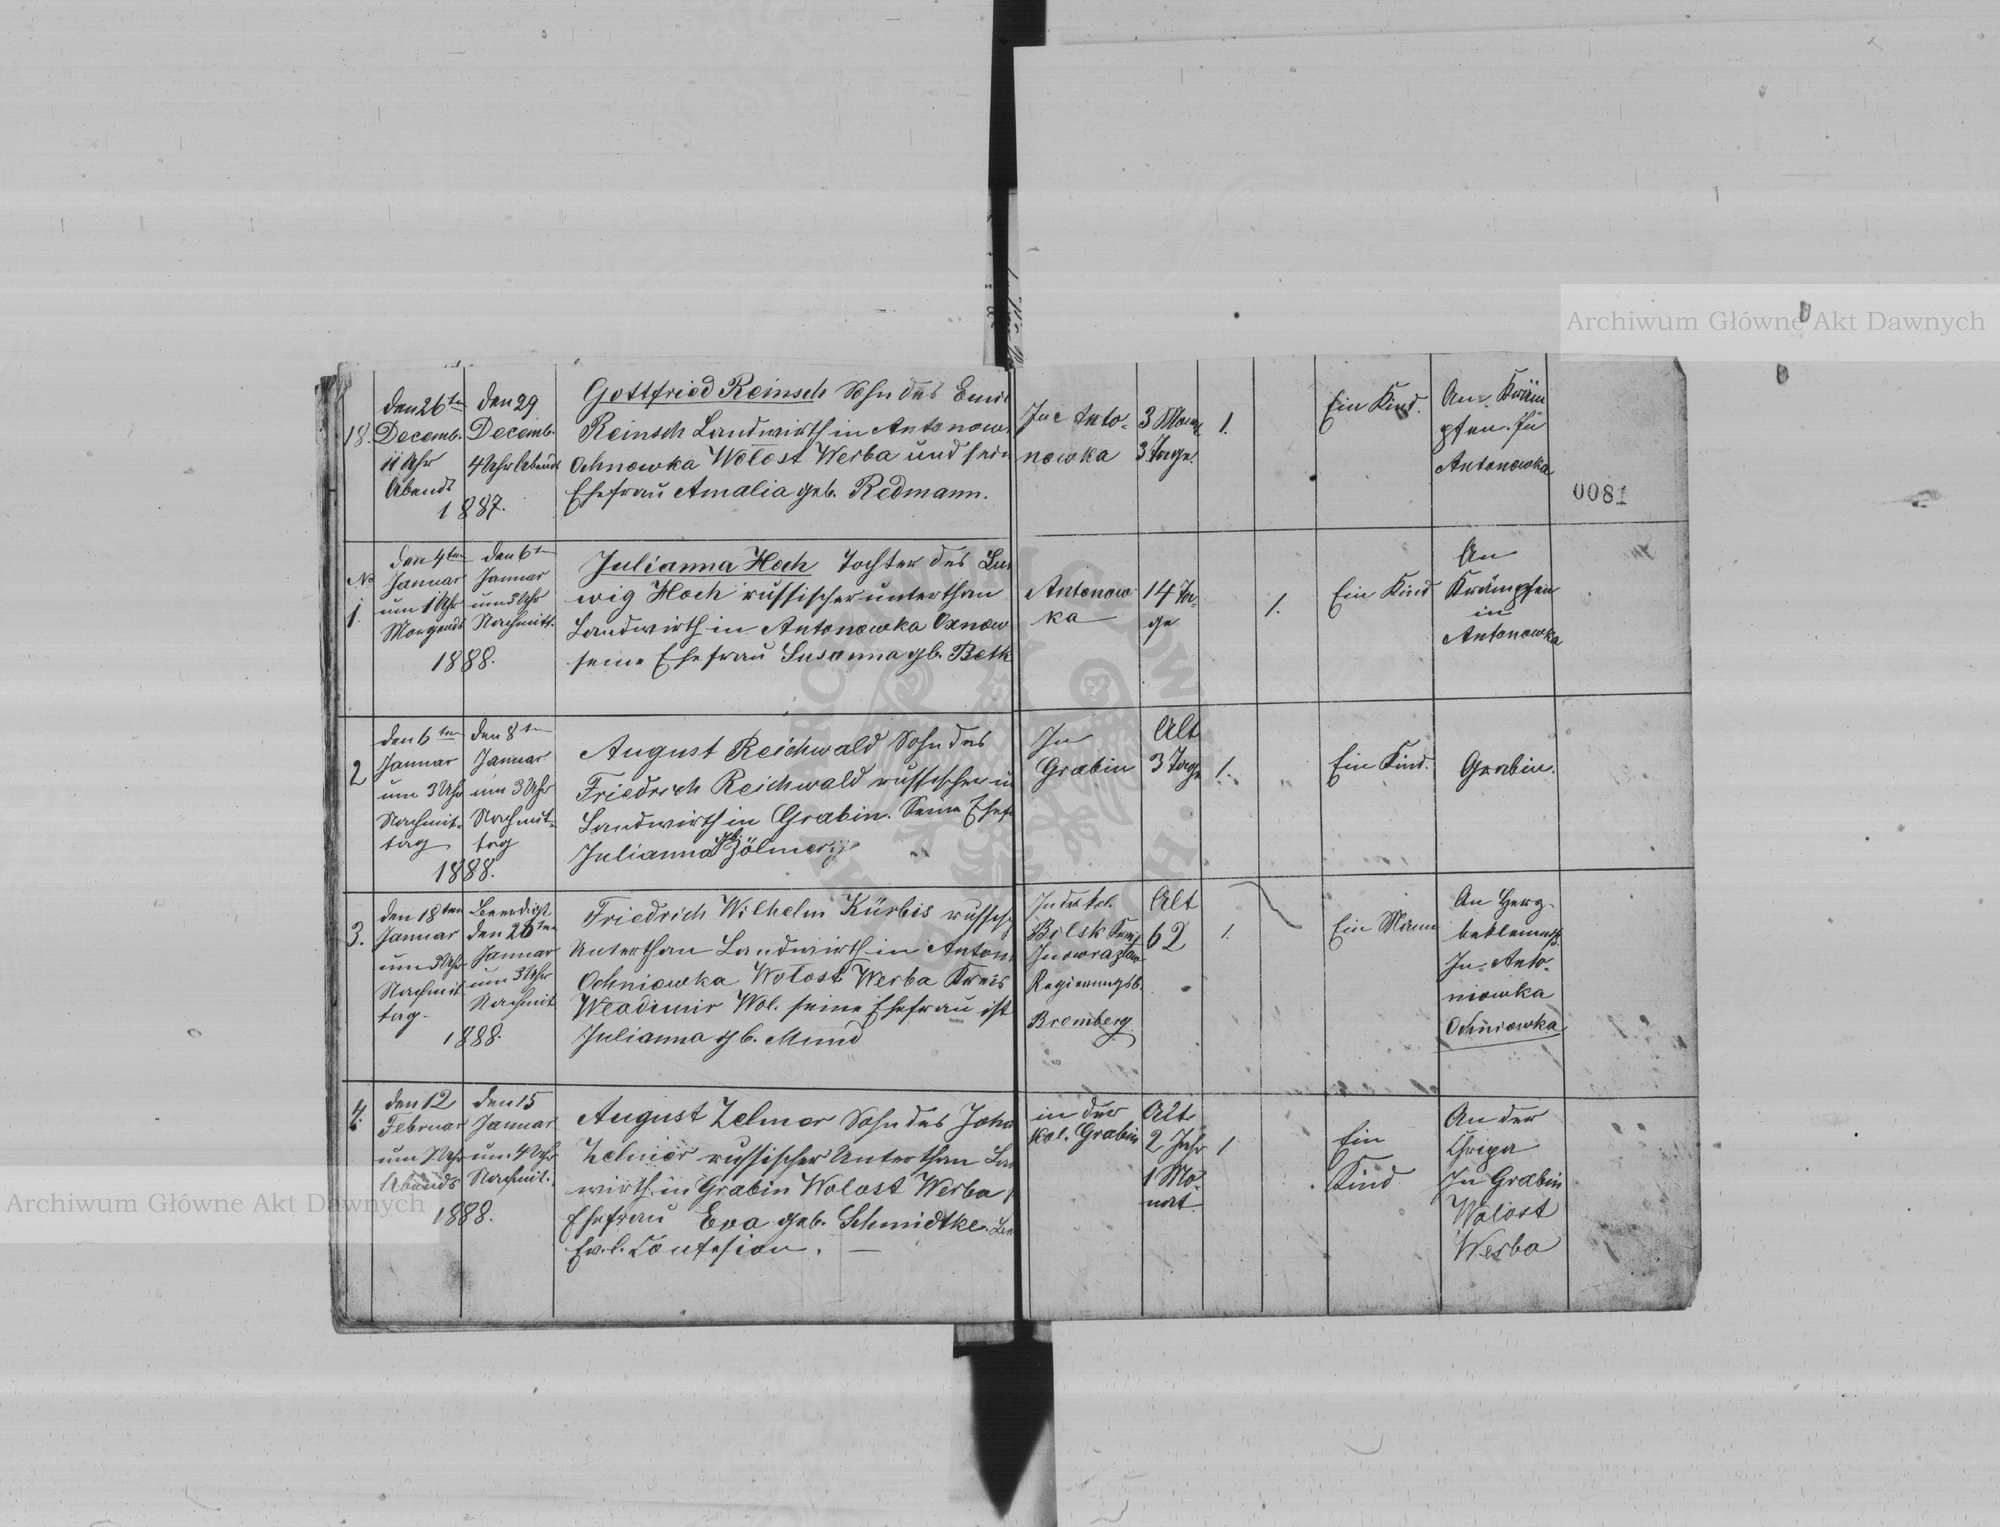 Archiwum Główne Akt Dawnych
18.
den 26ten
Decemb.
11 Uhr
Abends
den 29
Decemb.
4 Uhr Abends
1887.
Gottfried Reinsch Sohn des
Reinsch Landwirth in Antonow
Ochnowka Wolost Werba und sein
Ehefrau Amalia geb. Redmann.
In Anto-
nowka
3 Mon
3 Tage.
1.
Ein Kind.
An Kräm
pfen. In
Antonowka
0081
No
1.
den 4ten
Januar
um 1 Uhr
Morgends
den 6ten
Januar
um 3 Uhr
Nachmitt.
1888.
Julianna Hoch Tochter des Lud
wig Hoch russischer unterthan
Landwirth in Antonowka Oxnow
seine Ehefrau Susanna gb. Betk
Antonow
ka
14 Ta-
ge
1.
Ein Kind
An
Krämpfen
in
Antonowka
2
den 6ten
Januar
um 3 Uhr
Nachmit-
tag
den 8ten
Januar
um 3 Uhr
Nachmit-
tag
1888.
August Reichwald Sohn des
Friedrich Reichwald russischer u
Landwirth in Grabin. Seine Ehef
Julianna gb. Zölmer
In
Grabin
Alt
3 Tage
1.
"
Ein Kind.
Grabin.
3.
den 18ten
Januar
um 3 Uhr
Nachmit
tag.
Beerdigt
den 20ten
Januar
um 3 Uhr
Nachmit
1888.
Friedrich Wilhelm Kürbis russisch
Unterthan Landwirth in Anton
Ochniowka Wolost Werba Kreis
Wladimir Wol. seine Ehefrau ist
Julianna gb. Mund
In der Kol.
Bolsk
Inowrazlaw
Regierungsb.
Bromberg
Alt
62
1.
Ein Mann
An Herz-
beklemung
In Anto-
niowka
Ochniowka
4.
den 12
Februar
um Uhr
Abends
den 15
Januar
um 4 Uhr
Nachmit.
1888.
August Zelmer Sohn des Joha
Zelmer russischer Unterthan La
wirth in Grabin Wolost Werba
Ehefrau Eva geb. Schmidtke.
Ev. l. Confesion. —
in der
Kol. Grabin
Alt
2 Jahr
1 Mo-
nat
1
Ein
Kind
An der
In Grabin
Wolost
Werba
Archiwum Główne Akt Dawnych